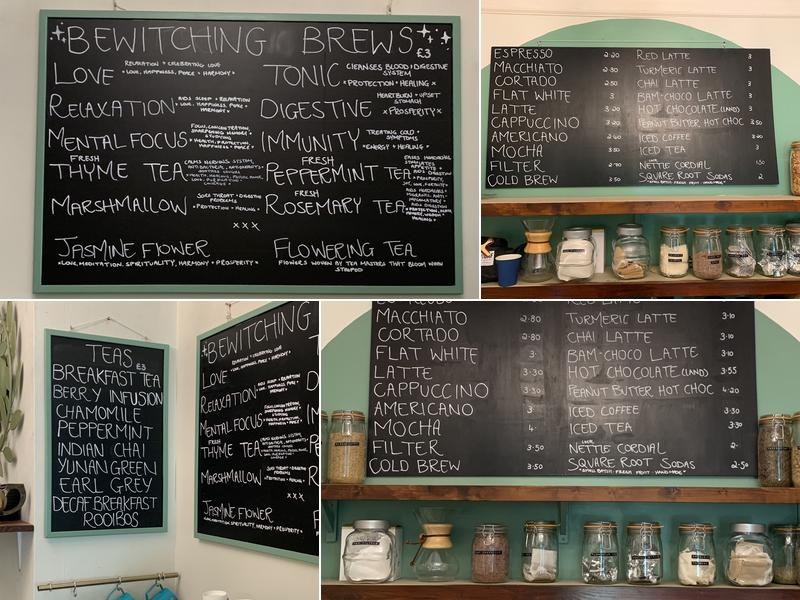 BEWITCHING BREWS £3
LOVE RELAXATION + CELEBRATING LOVE
+ LOVE, HAPPINESS, PEACE + HARMONY +
RELAXATION AIDS SLEEP + RELAXATION
+ LOVE, HAPPINESS, PEACE + HARMONY +
MENTAL FOCUS FOCUS, CONCENTRATION,
SHARPENING MEMORY +
STUDYING
+ HEALTH, PROTECTION,
HAPPINESS + PEACE +
FRESH
THYME TEA CALMS NERVOUS SYSTEM,
MARSHMALLOW SORE THROAT + DIGESTIVE
PROBLEMS
+ PROTECTION + HEALING +
JASMINE FLOWER
+ LOVE, MEDITATION, SPIRITUALITY, HARMONY + PROSPERITY +
TONIC CLEANSES BLOOD + DIGESTIVE
SYSTEM
+ PROTECTION + HEALING +
DIGESTIVE HEARTBURN + UPSET
STOMACH
+ PROSPERITY +
IMMUNITY TREATING COLD
SYMPTOMS
+ ENERGY + HEALING +
FRESH
PEPPERMINT TEA
FRESH
ROSEMARY TEA
xxx
FLOWERING TEA
FLOWERS WOVEN BY TEA MASTERS THAT BLOOM WHEN
STEEPED
ESPRESSO 2·20
MACCHIATO 2·30
CORTADO 2·50
FLAT WHITE 3
LATTE 3·20
CAPPUCCINO 3·20
AMERICANO 2·40
MOCHA 3·50
FILTER 2·70
COLD BREW 3·50
RED LATTE 3
TURMERIC LATTE 3
CHAI LATTE 3
BAM-CHOCO LATTE 3
HOT CHOCOLATE (LAND) 3
PEANUT BUTTER HOT CHOC 3·50
ICED COFFEE 3
ICED TEA 3
NETTLE CORDIAL 1·50
SQUARE ROOT SODAS 2
*SMALL BATCH · FRESH FRUIT · HANDMADE*
TEAS
£3
BREAKFAST TEA
BERRY INFUSION
CHAMOMILE
PEPPERMINT
INDIAN CHAI
YUNAN GREEN
EARL GREY
DECAF BREAKFAST
ROOIBOS
BEWITCHING
LOVE RELAXATION + CELEBRATING LOVE
+ LOVE, HAPPINESS, PEACE + HARMONY +
RELAXATION
MENTAL FOCUS
FRESH
THYME TEA
MARSHMALLOW
xxx
JASMINE FLOWER
MACCHIATO 2·80
CORTADO 2·80
FLAT WHITE 3·
LATTE 3·30
CAPPUCCINO 3·30
AMERICANO 3·
MOCHA 4·
FILTER 3·50
COLD BREW 3·50
RED LATTE
TURMERIC LATTE 3·10
CHAI LATTE 3·10
BAM-CHOCO LATTE 3·10
HOT CHOCOLATE (LAND) 3·55
PEANUT BUTTER HOT CHOC 4·20
ICED COFFEE 3·30
ICED TEA 3·30
NETTLE CORDIAL 2·
SQUARE ROOT SODAS 2·50
*SMALL BATCH · FRESH FRUIT · HANDMADE*